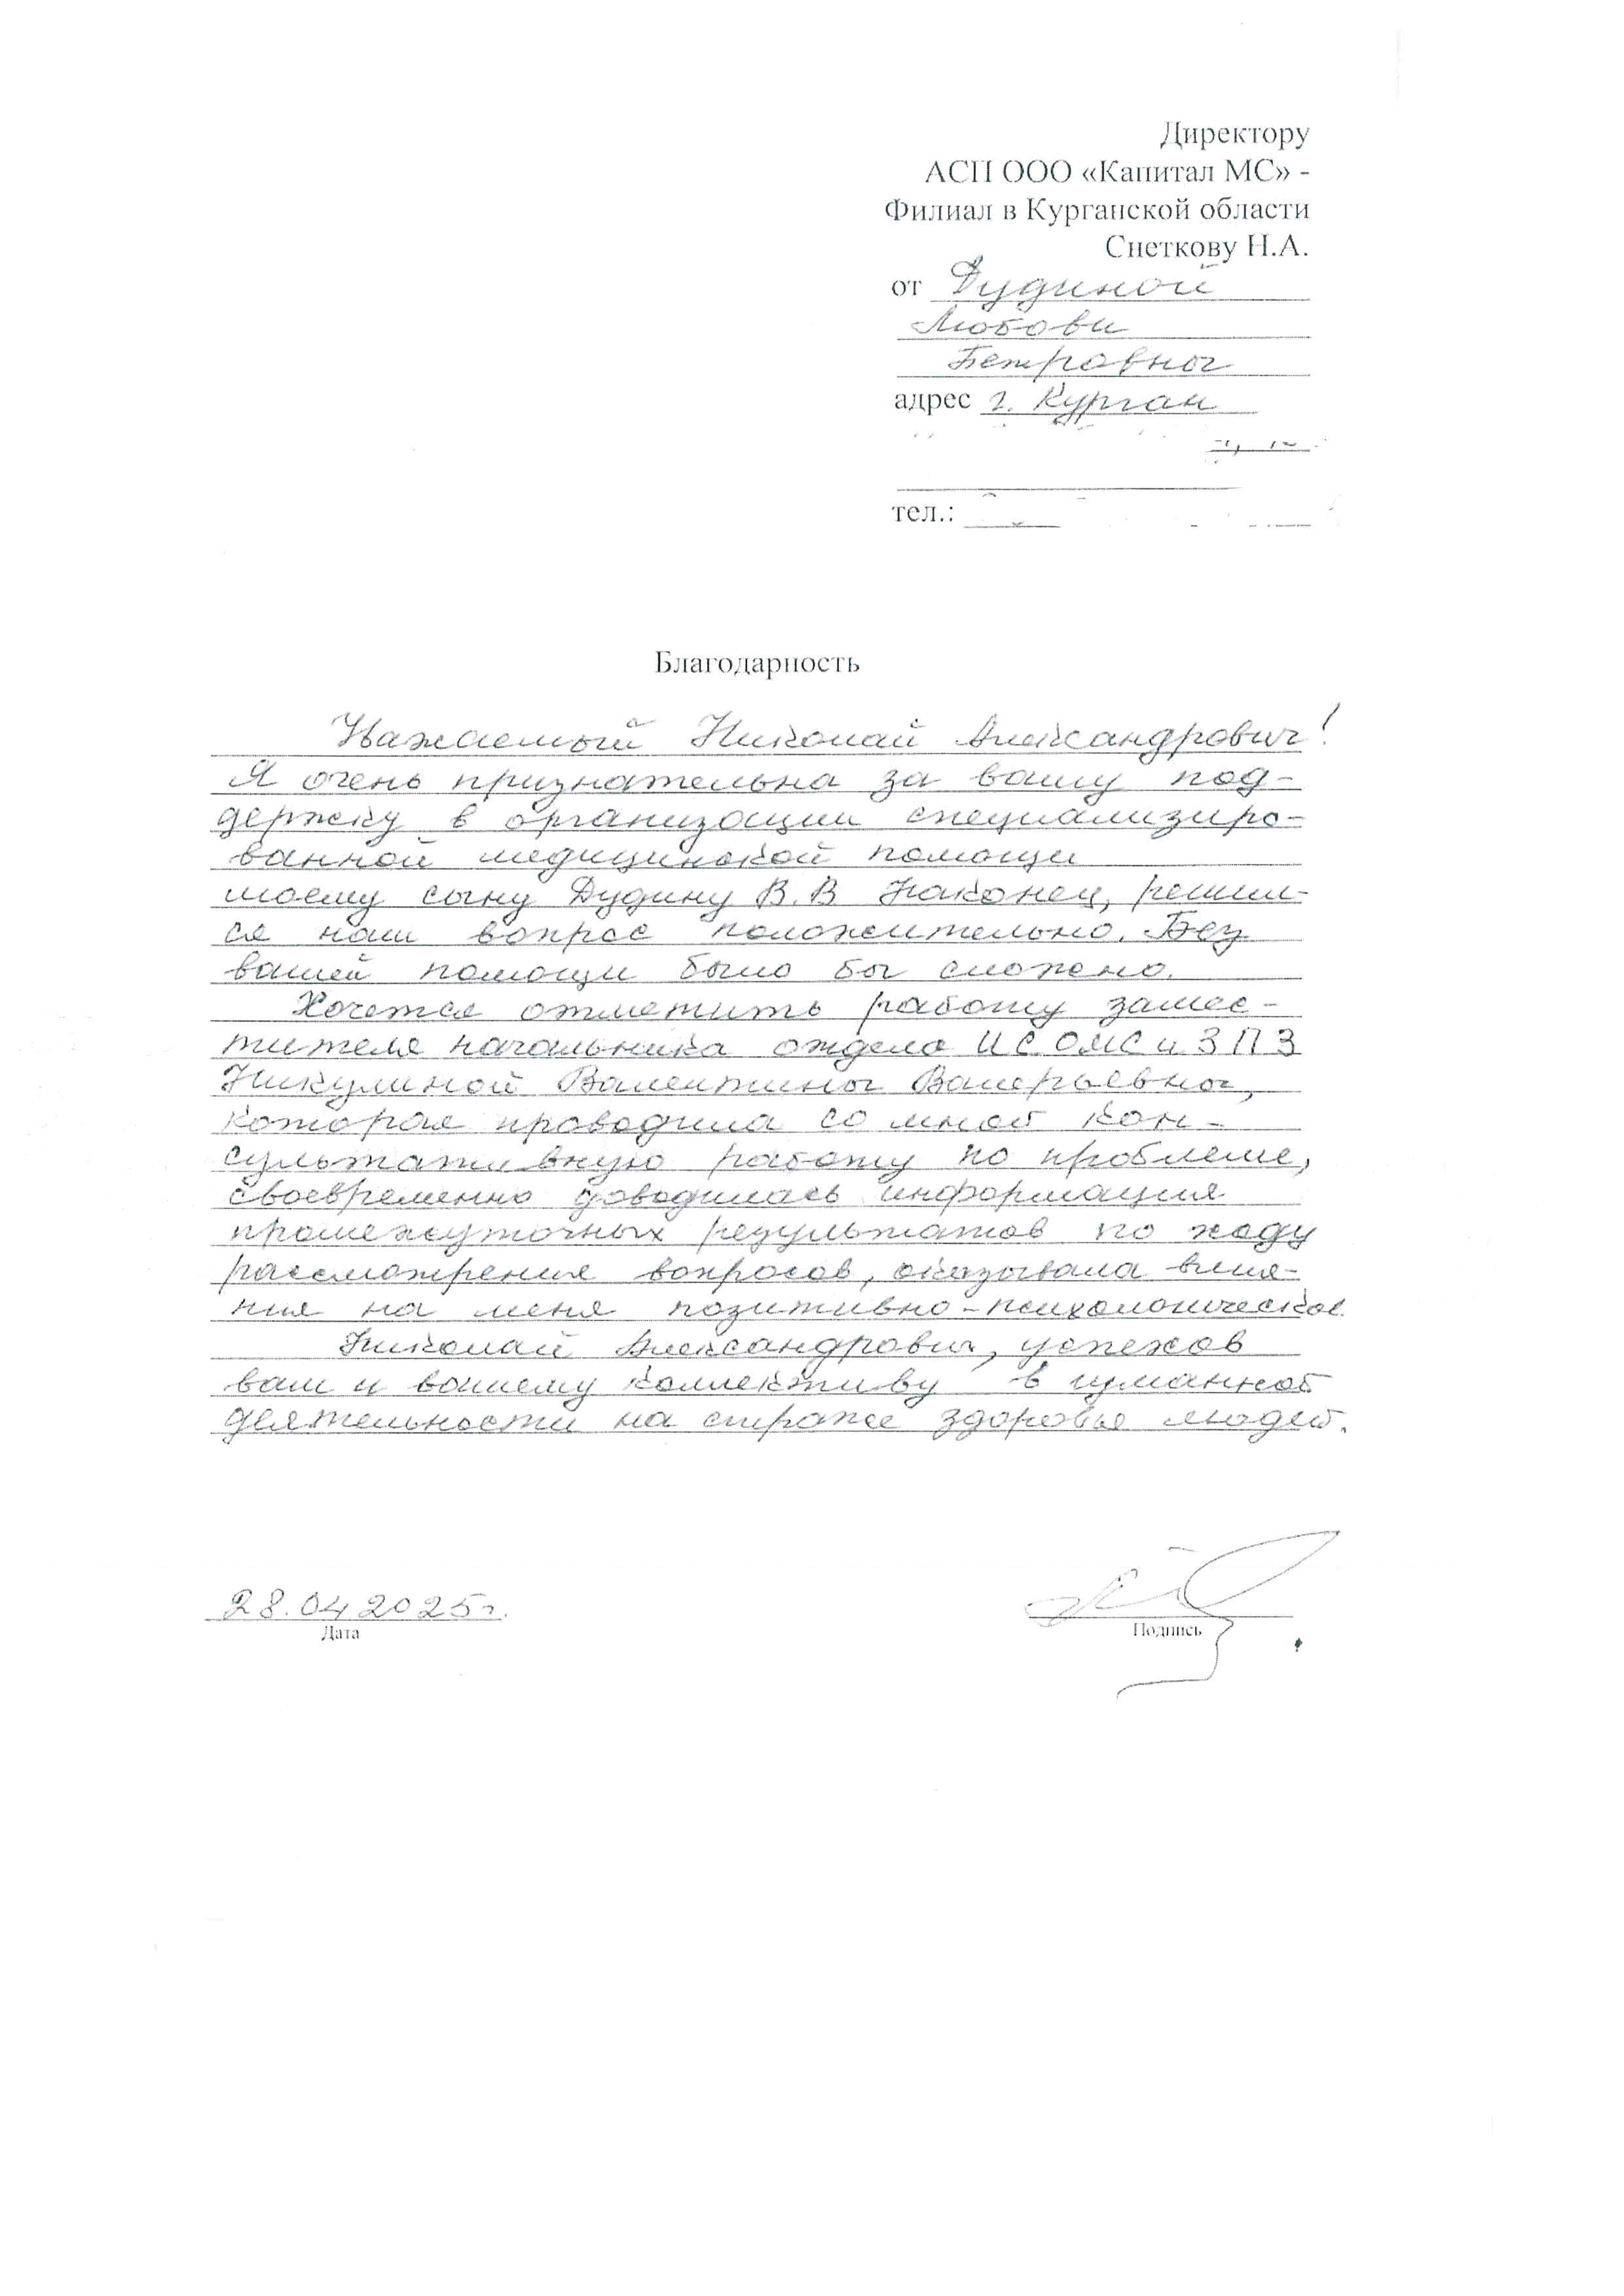 Директору
АСП ООО «Капитал МС» -
Филиал в Курганской области
Снеткову Н.А.
от Дудиной
Любови
Петровны
адрес г. Курган
тел.:
Благодарность
Уважаемый Николай Александрович!
Я очень признательна за вашу под-
держку в организации специализиро-
ванной медицинской помощи
моему сыну Дудину В.В Наконец, решил-
ся наш вопрос положительно. Без
вашей помощи было бы сложено.
Хочется отметить работу замес-
тителя начальника отдела ИС ОМС и ЗПЗ
Никулиной Валентины Валерьевны,
которая проводила со мной кон-
сультативную работу по проблеме,
своевременно доводилась информация
промежуточных результатов по ходу
рассмотрения вопросов, оказывала влия-
ния на меня позитивно-психологическое.
Николай Александрович, успехов
вам и вашему коллективу в гуманной
деятельности на страже здоровья людей.
28.04 2025г.
Дата
Подпись